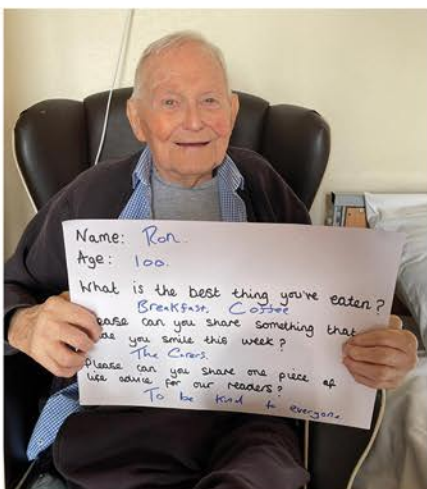 Name: Ron.
Age: 100.
What is the best thing you've eaten?
Breakfast, Coffee
Please can you share something that
made you smile this week?
The Carers.
Please can you share one piece of
life advice for our readers?
To be kind to everyone